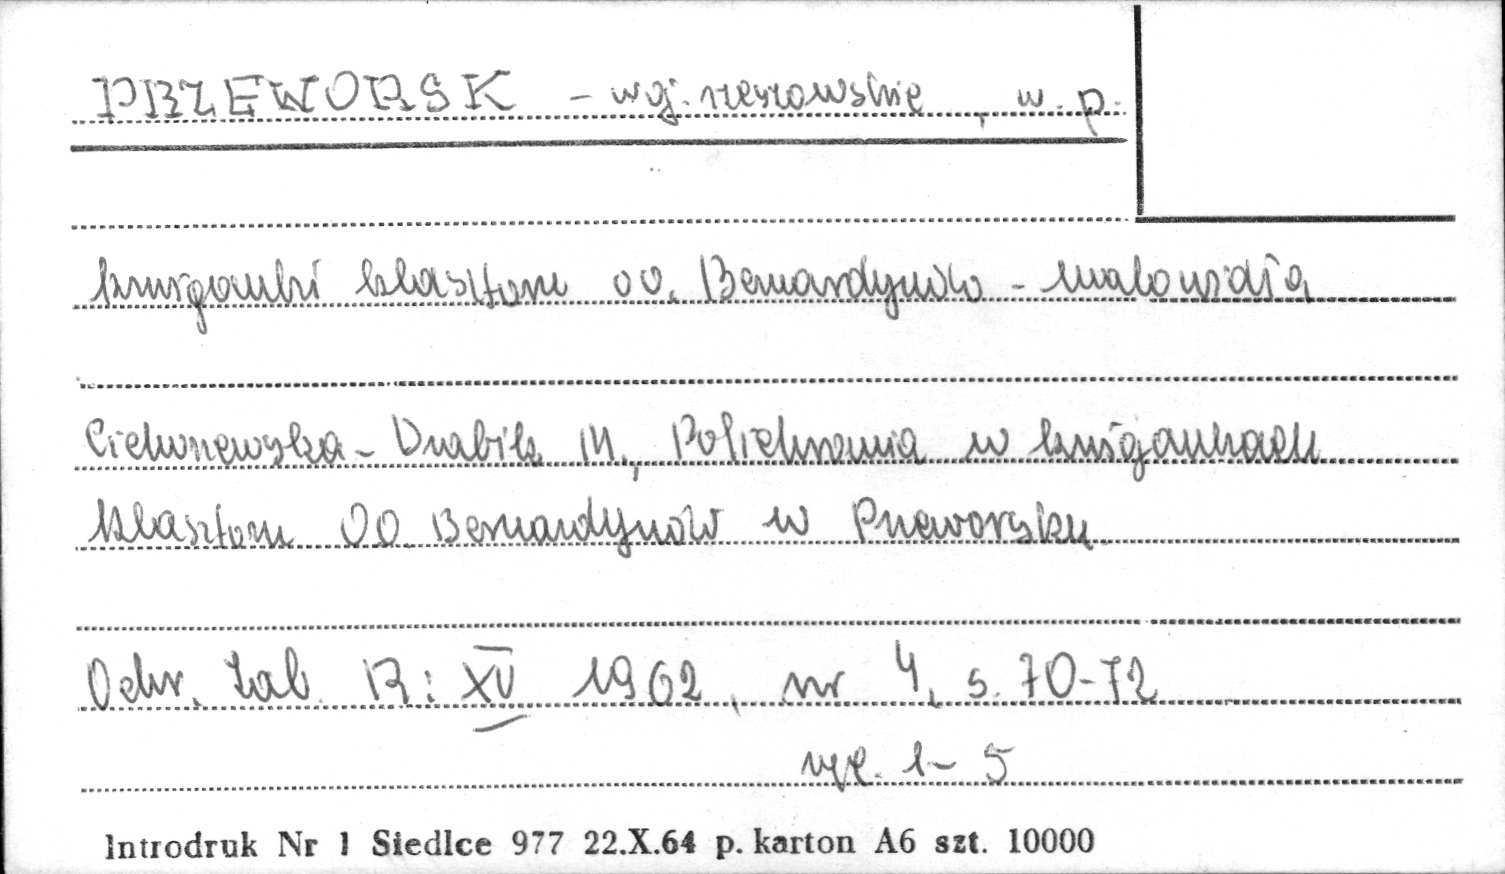 PRZEWORSK - woj. rzeszowskie, w. p.
krużganki klasztoru oo. Bernardynów - malowidła
Ciechorzewska-Drabik M., Polichromia w krużgankach
klasztoru OO. Bernardynów w Przeworsku.
Ochr. Zab. R: XV 1962, nr 4, s. 70-72
ryc. 1-5
Introdruk Nr 1 Siedlce 977 22.X.64 p. karton A6 szt. 10000